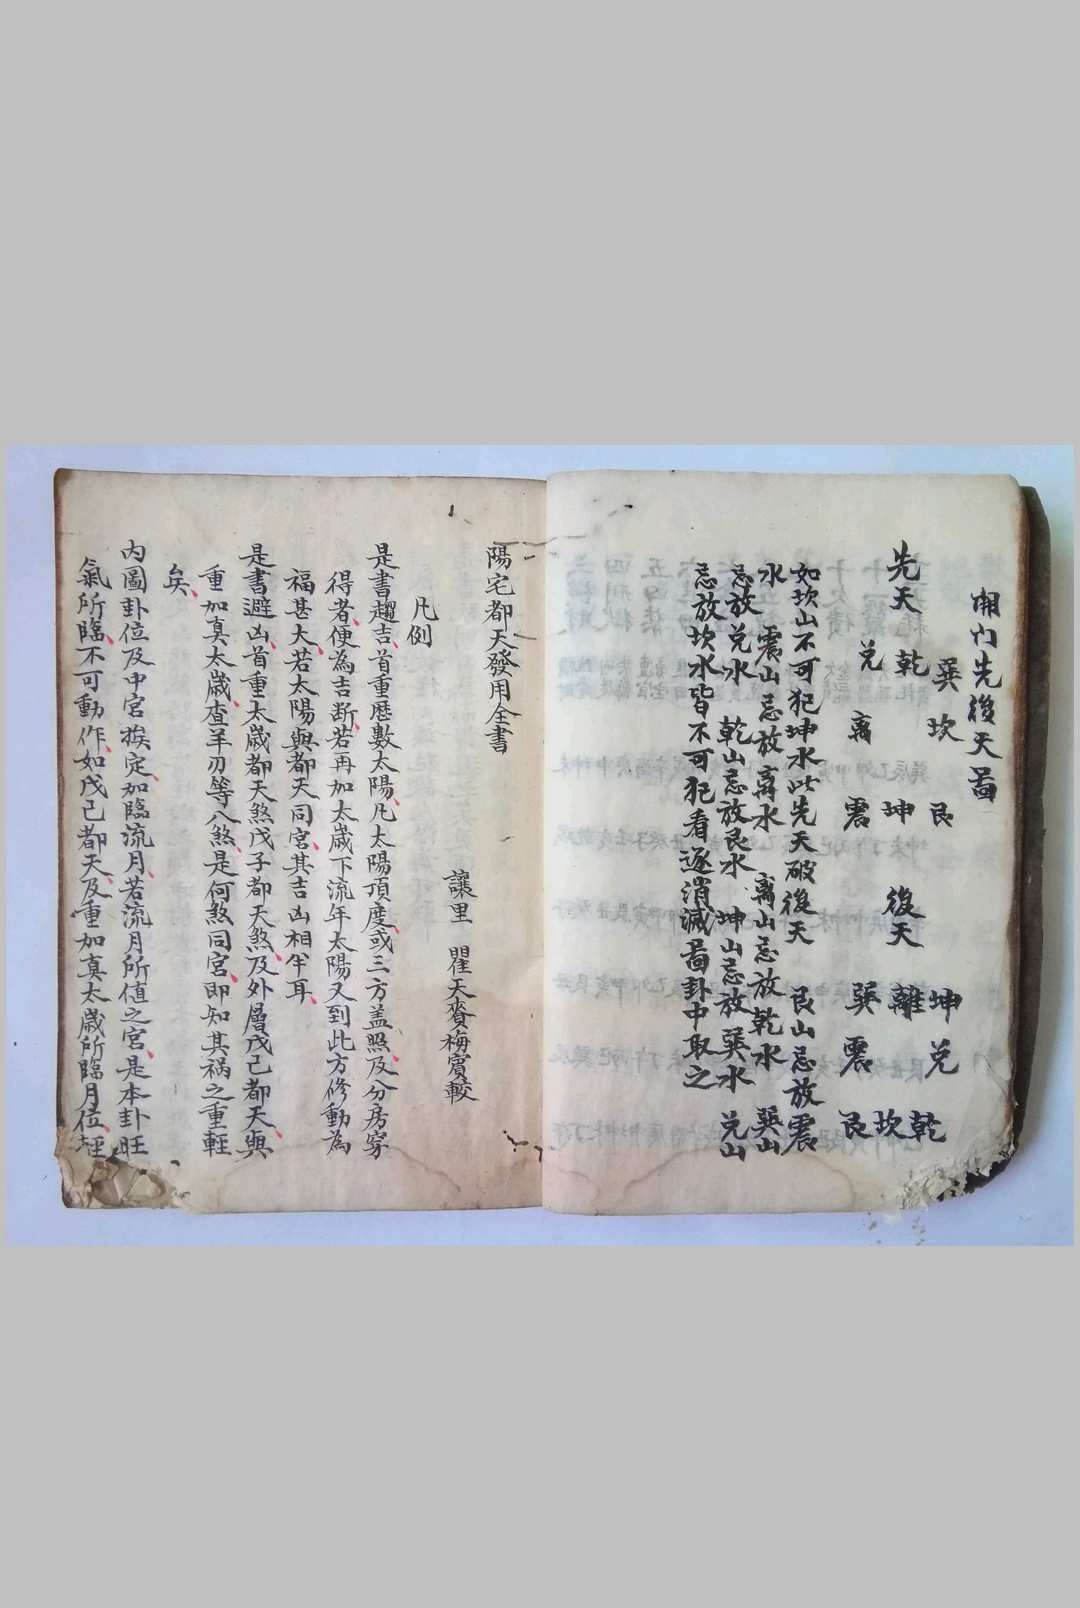 開門先後天畨
先天
巽 坎 艮
乾 坤
兌 离 震
後天
坤 兌 乾
離 坎
巽 震 艮
如坎山不可犯坤水此先天破後天 艮山忌放震
水 震山忌放离水 离山忌放乾水 巽山
忌放兌水 乾山忌放艮水 坤山忌放巽水 兌山
忌放坎水皆不可犯看逐消滅畨卦中取之
陽宅都天發用全書
讓里 瞿天賚梅賓較
凡例
是書趨吉、首重歷數太陽、凡太陽頂度、或三方盖照、及分房穿
得者、便為吉断、若再加太歲下流年太陽又到此方修動為
福甚大、若太陽與都天同宮、其吉凶相半耳、
是書避凶、首重太歲都天煞戊子都天煞、及外層戊己都天、與
重加真太歲、查羊刃等八煞、是何煞同宮、即知其禍之重輕
矣、
内圖卦位及中宮挨定、加臨流月、若流月所值之宮、是本卦旺
氣所臨、不可動作、如戊己都天、及重加真太歲所臨月位、